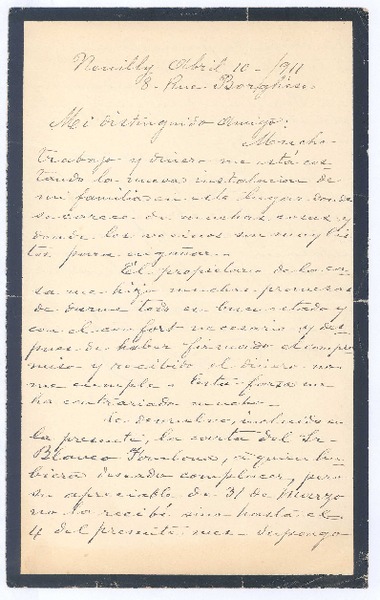 Neuilly Abril 10-/911
8. Rue Borghèse.
Mi distinguido amigo:
Mucho
trabajo y dinero me está cos-
tando la nueva instalacion de
mi familia en este lugar donde
se carece de muchas cosas y
donde los vecinos son muy lis-
tos para engañar.
El propietario de la ca-
sa me hizo muchas promesas
de darme todo en buen estado y
con el confort necesario y des-
pues de haber firmado el compro-
miso y recibido el dinero no
me cumple. Esto me
ha contrariado mucho.
Le devuelvo, incluida en
la presente, la carta del Sr.
Blanco Fombona, á quien hu-
biera deseado complacer, pero
su apreciable de 31 de Marzo
no la recibí sino hasta el
4 del presente mes. Supongo